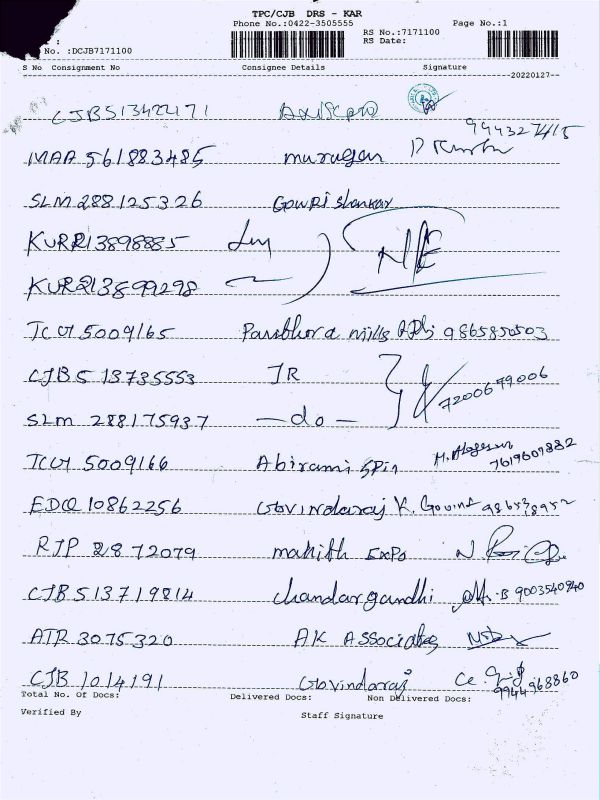 TPC/CJB DRS - KAR
Phone No.:0422-3505555 Page No.:1
RS No.:7171100
No. :DCJB7171100 RS Date:
S No Consignment No Consignee Details Signature
20220127
CJB513422171
994327415
MAA 561883485 murugan
SLM 288125326 Gowri Shankar
KUR213898885
KUR213899298
TCU 5009165 mills 9865850503
CJB 513735553 JR
7200679006
SLM 288175937 -do-
TCU 5009166 Abirami Spin
7619607882
EDQ 10862256 Govindaraj K. Govind
RJP 2872079 Expo
CJB 513719814 chandargandhi 9003540940
ATR 3075320 AK Associates
CJB 1014191 Govindaraj
9944968860
Total No. Of Docs: Delivered Docs: Non Delivered Docs:
Verified By Staff Signature